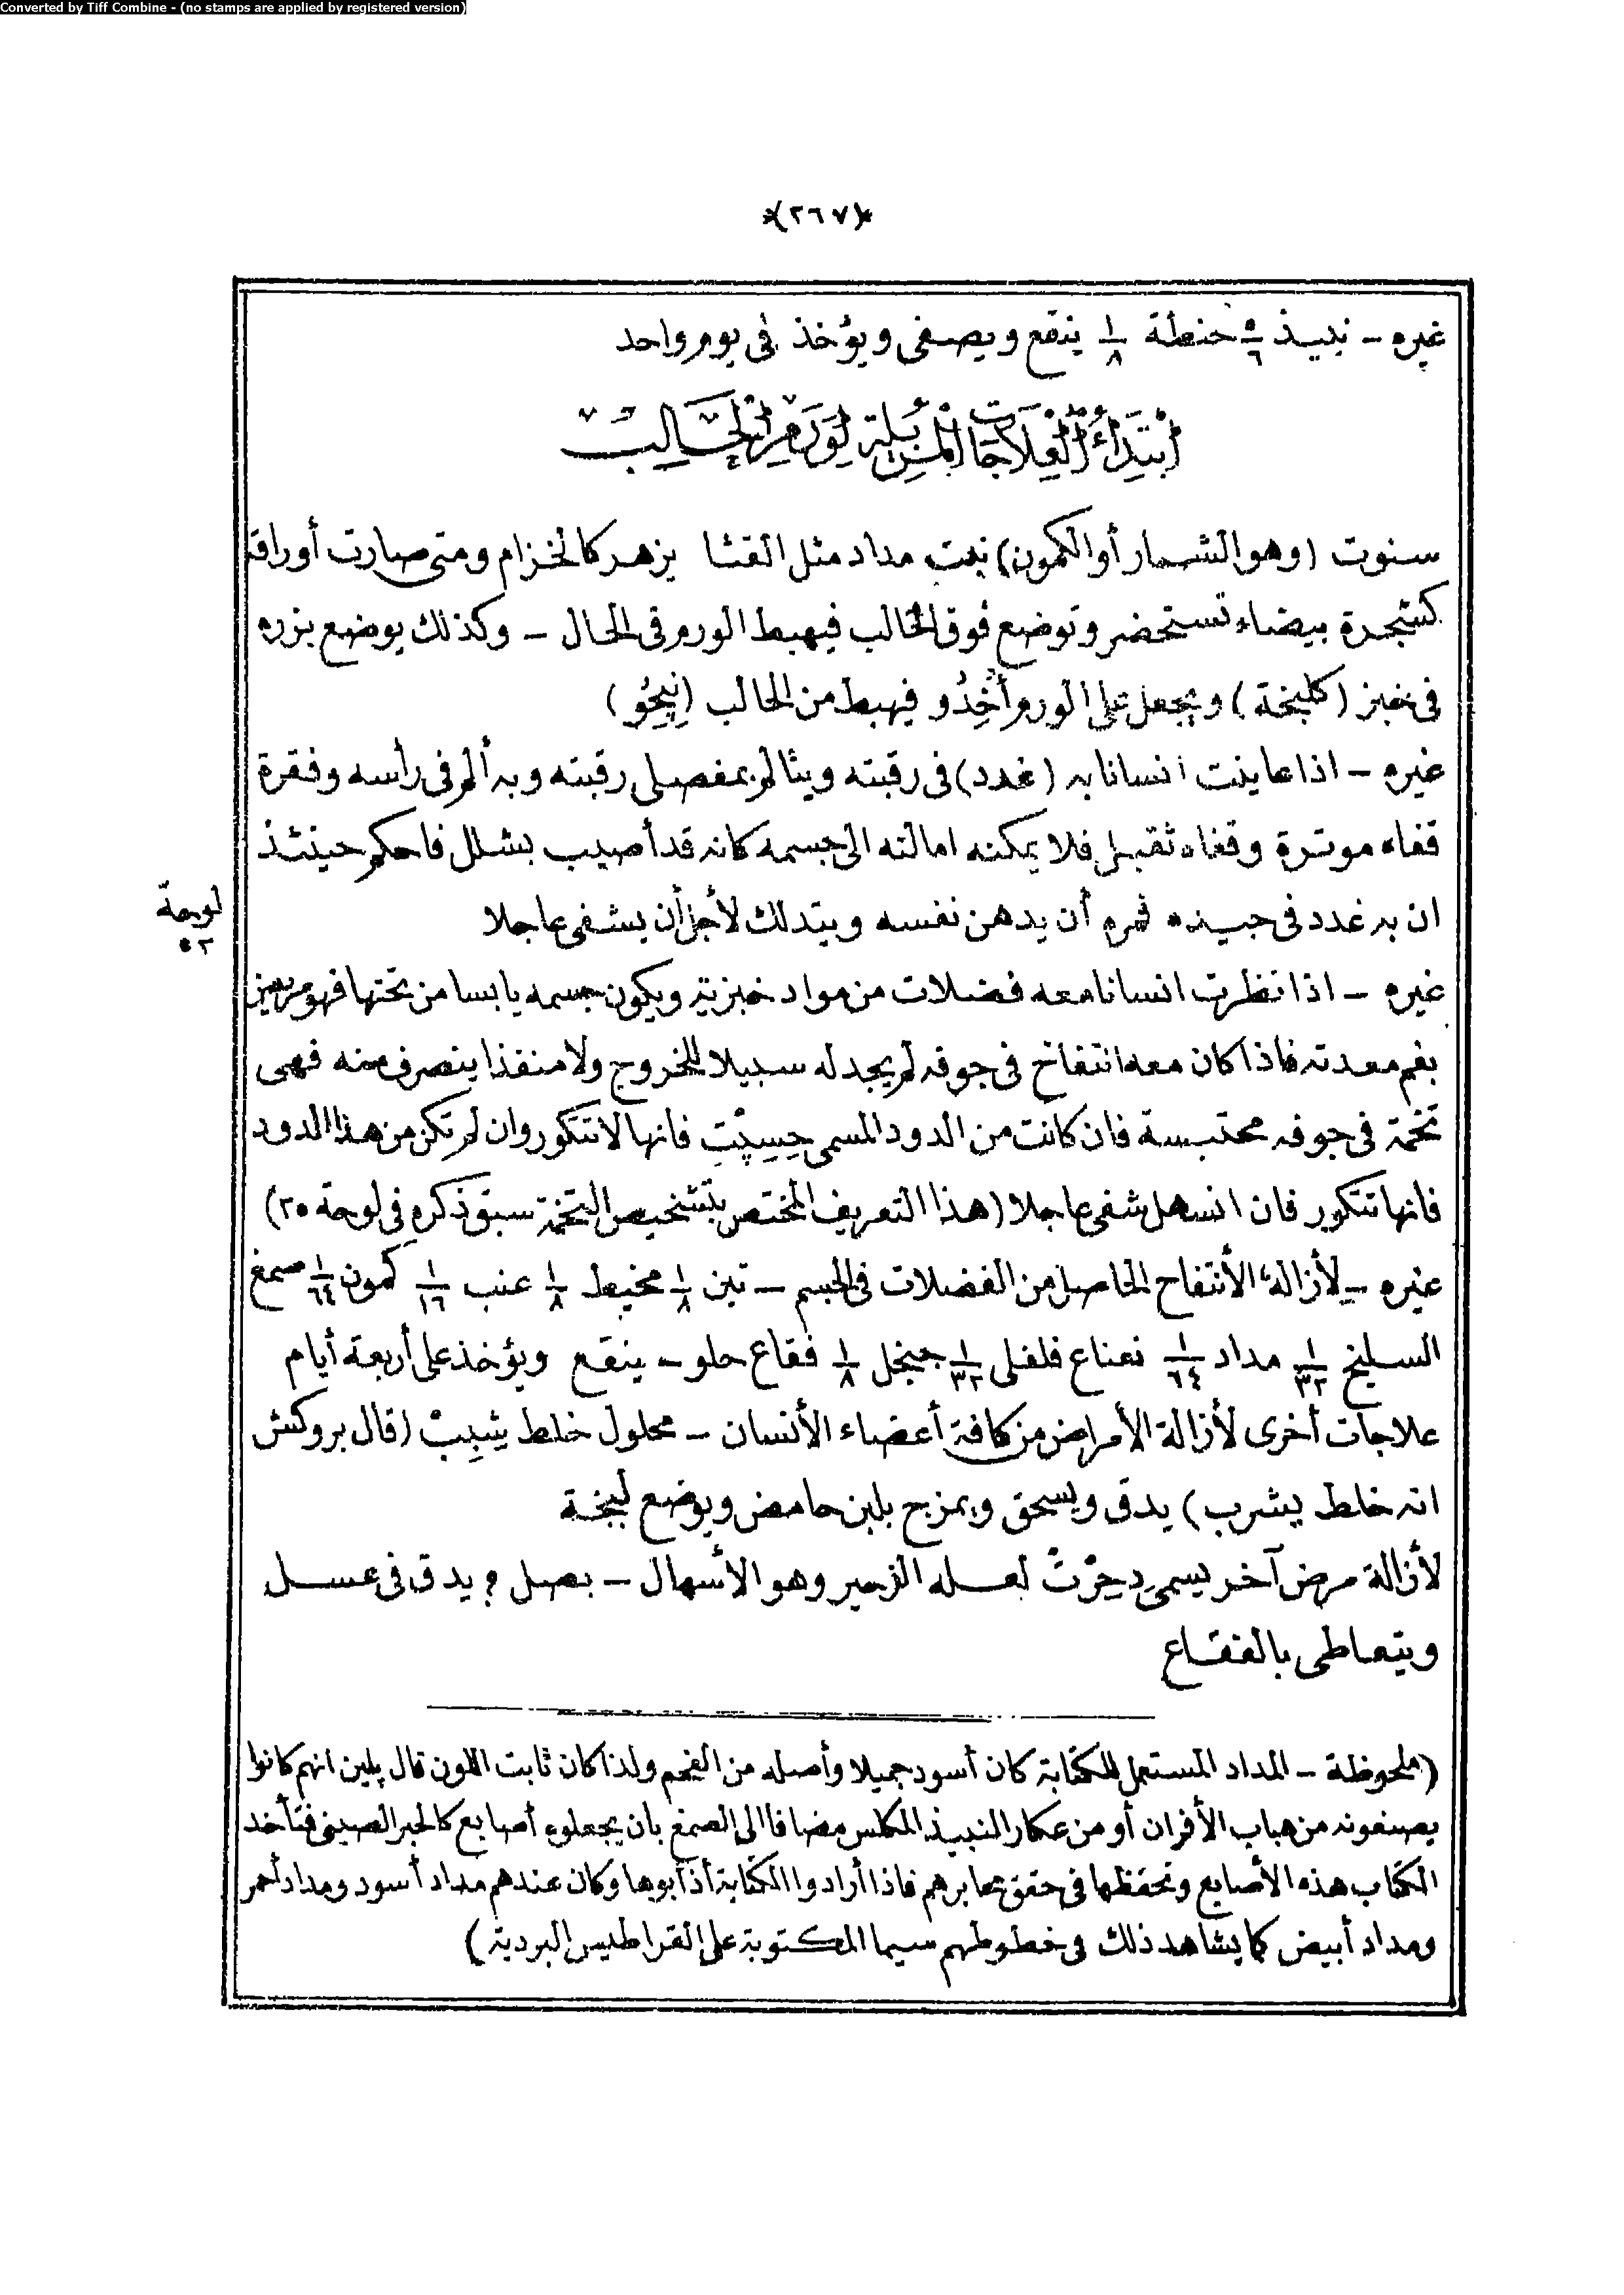 Converted by Tiff Combine - (no stamps are applied by registered version)
*(٢٦٧)*
غيره - نبيذ ٥/٦ حنطة ١/٨ ينقع ويصفى ويؤخذ فى يوم واحد
ابتداء العلاجات المزيلة لورم الحالب
سنوت (وهو الشمار أو الكمون) نبت مداد مثل القثا يزهر كالخزام ومتى صارت أوراقه
كشجرة بيضاء تستحضر وتوضع فوق الحالب فيهبط الورم فى الحال - وكذلك يوضع بزره
فى خبز (كلبخة) ويجعل على الورم أخِدُو فيهبط من الحالب (نِپِحُو)
غيره - اذا عاينت انسانا به (غدد) فى رقبته ويتألم بمفصلى رقبته وبه ألم فى رأسه وفقرة
قفاه موترة وقفاه ثقيل فلا يمكنه امالته الى جسمه كانه قد أصيب بشلل فاحكم حينئذ
ان به غدد فى جيده فمره أن يدهن نفسه ويتدلك لأجل أن يشفى عاجلا
لوحة
٥٢
غيره - اذا نظرت انسانا معه فضلات من مواد خبزية ويكون جسمه يابسا من تحتها فهو مريض
بفم معدته فاذا كان معه انتفاخ فى جوفه لم يجد له سبيلا للخروج ولا منفذا ينصرف منه فهى
تخمة فى جوفه محتبسة فان كانت من الدود المسمى حِسِپِت فانها لا تتكور وان لم تكن من هذا الدود
فانها تتكور فان انسهل شفى عاجلا (هذا التعريف المختص بتشخيص التخمة سبق ذكره فى لوحة ٢٥)
غيره - لأزالة الأنتفاح الحاصل من الفضلات فى الجسم - تين ١/٨ مخيط ١/٨ عنب ١/١٦ كمون ١/٦٤ صمغ
السليخ ١/٣٢ مداد ١/٦٤ نعناع فلفلى ١/٣٢ جينجل ١/٨ فقاع حلو - ينقع ويؤخذ على أربعة أيام
علاجات أخرى لأزالة الأمراض من كافة أعضاء الأنسان - محلول خلط شِبِبْ (قال بروكش
انه خلط يشرب) يدق ويسحق ويمزج بلبن حامض ويوضع لبخة
لأزالة مرض آخر يسمى دِحِرْتْ لعله الزحير وهو الأسهال - بصل ؟ يدق فى عسل
ويتعاطى بالفقاع
(ملحوظة - المداد المستعمل للكتابة كان أسود جميلا وأصله من الفحم ولذا كان ثابت اللون قال پلين انهم كانوا
يصنعونه من هباب الأفران أو من عكار النبيذ المكلس مضافا الى الصمغ بان يجعلوه أصابع كالحبر الصينى فتأخذ
الكتاب هذه الأصابع وتحفظها فى حقق محابرهم فاذا أرادوا الكتابة أذابوها وكان عندهم مداد أسود ومداد أحمر
ومداد أبيض كما يشاهد ذلك فى خطوطهم سيما المكتوبة على القراطيس البردية)